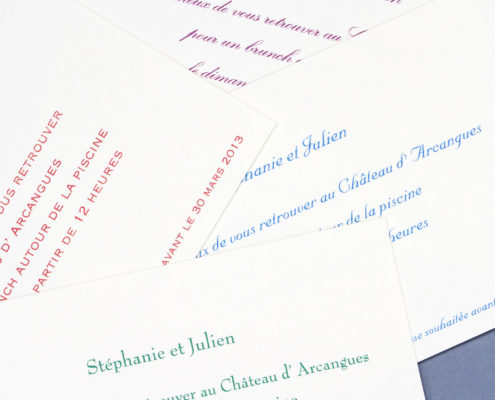 de vous retrouver au
pour un brunch
le diman
OUS RETROUVER
D'ARCANGUES
AUTOUR DE LA PISCINE
PARTIR DE 12 HEURES
AVANT LE 30 MARS 2013
et Julien
de vous retrouver au Château d'Arcangues
de la piscine
heures
souhaitée avant
Stéphanie et Julien
au Château d'Arcangues